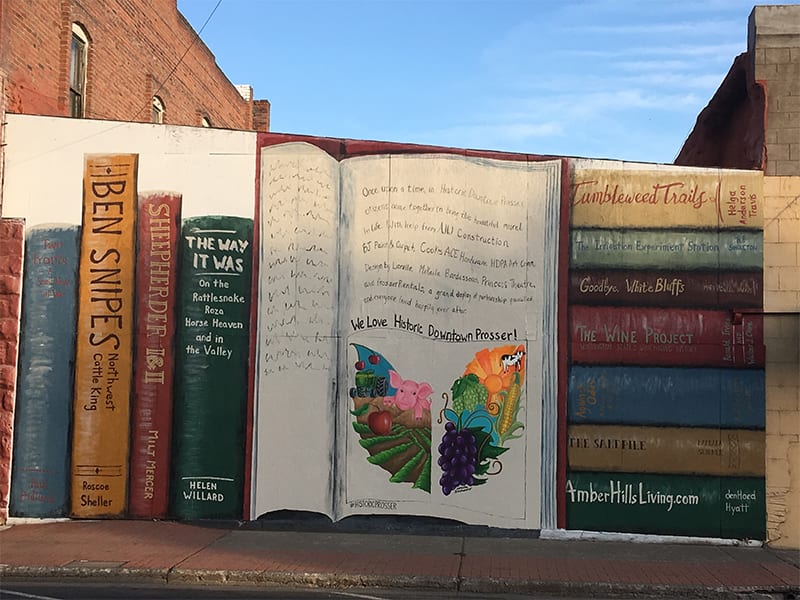 BEN SNIPES
Northwest
Cattle King
Roscoe
Sheller
SHEEPHERDER I&II
MILT MERCER
THE WAY
IT WAS
On the
Rattlesnake
Roza
Horse Heaven
and in
the Valley
HELEN
WILLARD
Once upon a time, in Historic Downtown Prosser
citizens came together to bring the beautiful mural
to life. With help from UU Construction
BJ Paint & Carpet, Cook's ACE Hardware, HDPA Art Comm.
Design by Lanelle, Michele Bardessono, Princess Theatre,
and Prosser Rentals, a grand display of partnership prevailed
and everyone lived happily ever after.
We Love Historic Downtown Prosser!
#HISTORICPROSSER
Tumbleweed Trails
Helga
Anderson
Travis
The Irrigation Experiment Station
Goodbye, White Bluffs
THE WINE PROJECT
THE SANDPILE
AmberHillsLiving.com
denHoed
Hyatt